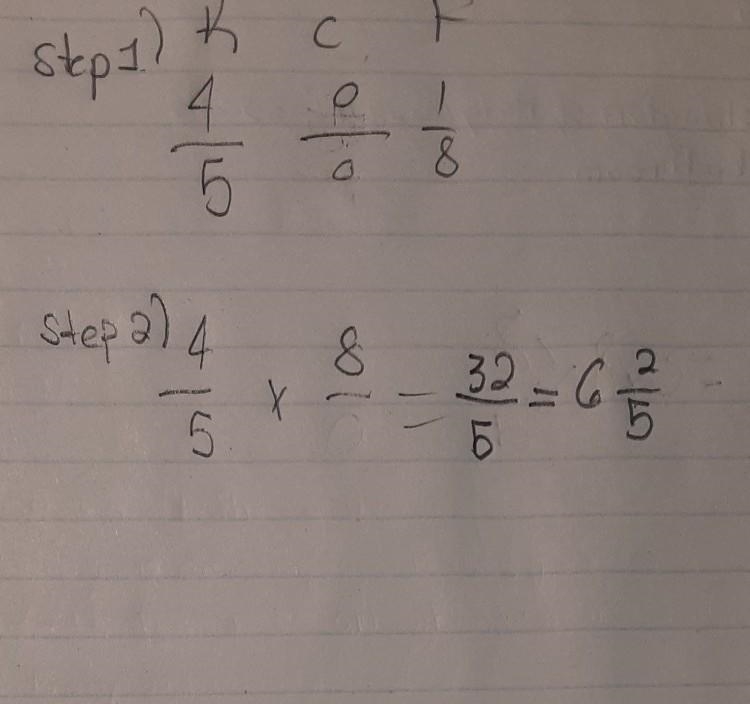 Step 1) K C F
4/5 ÷ 1/8
Step 2) 4/5 x 8/ = 32/5 = 6 2/5